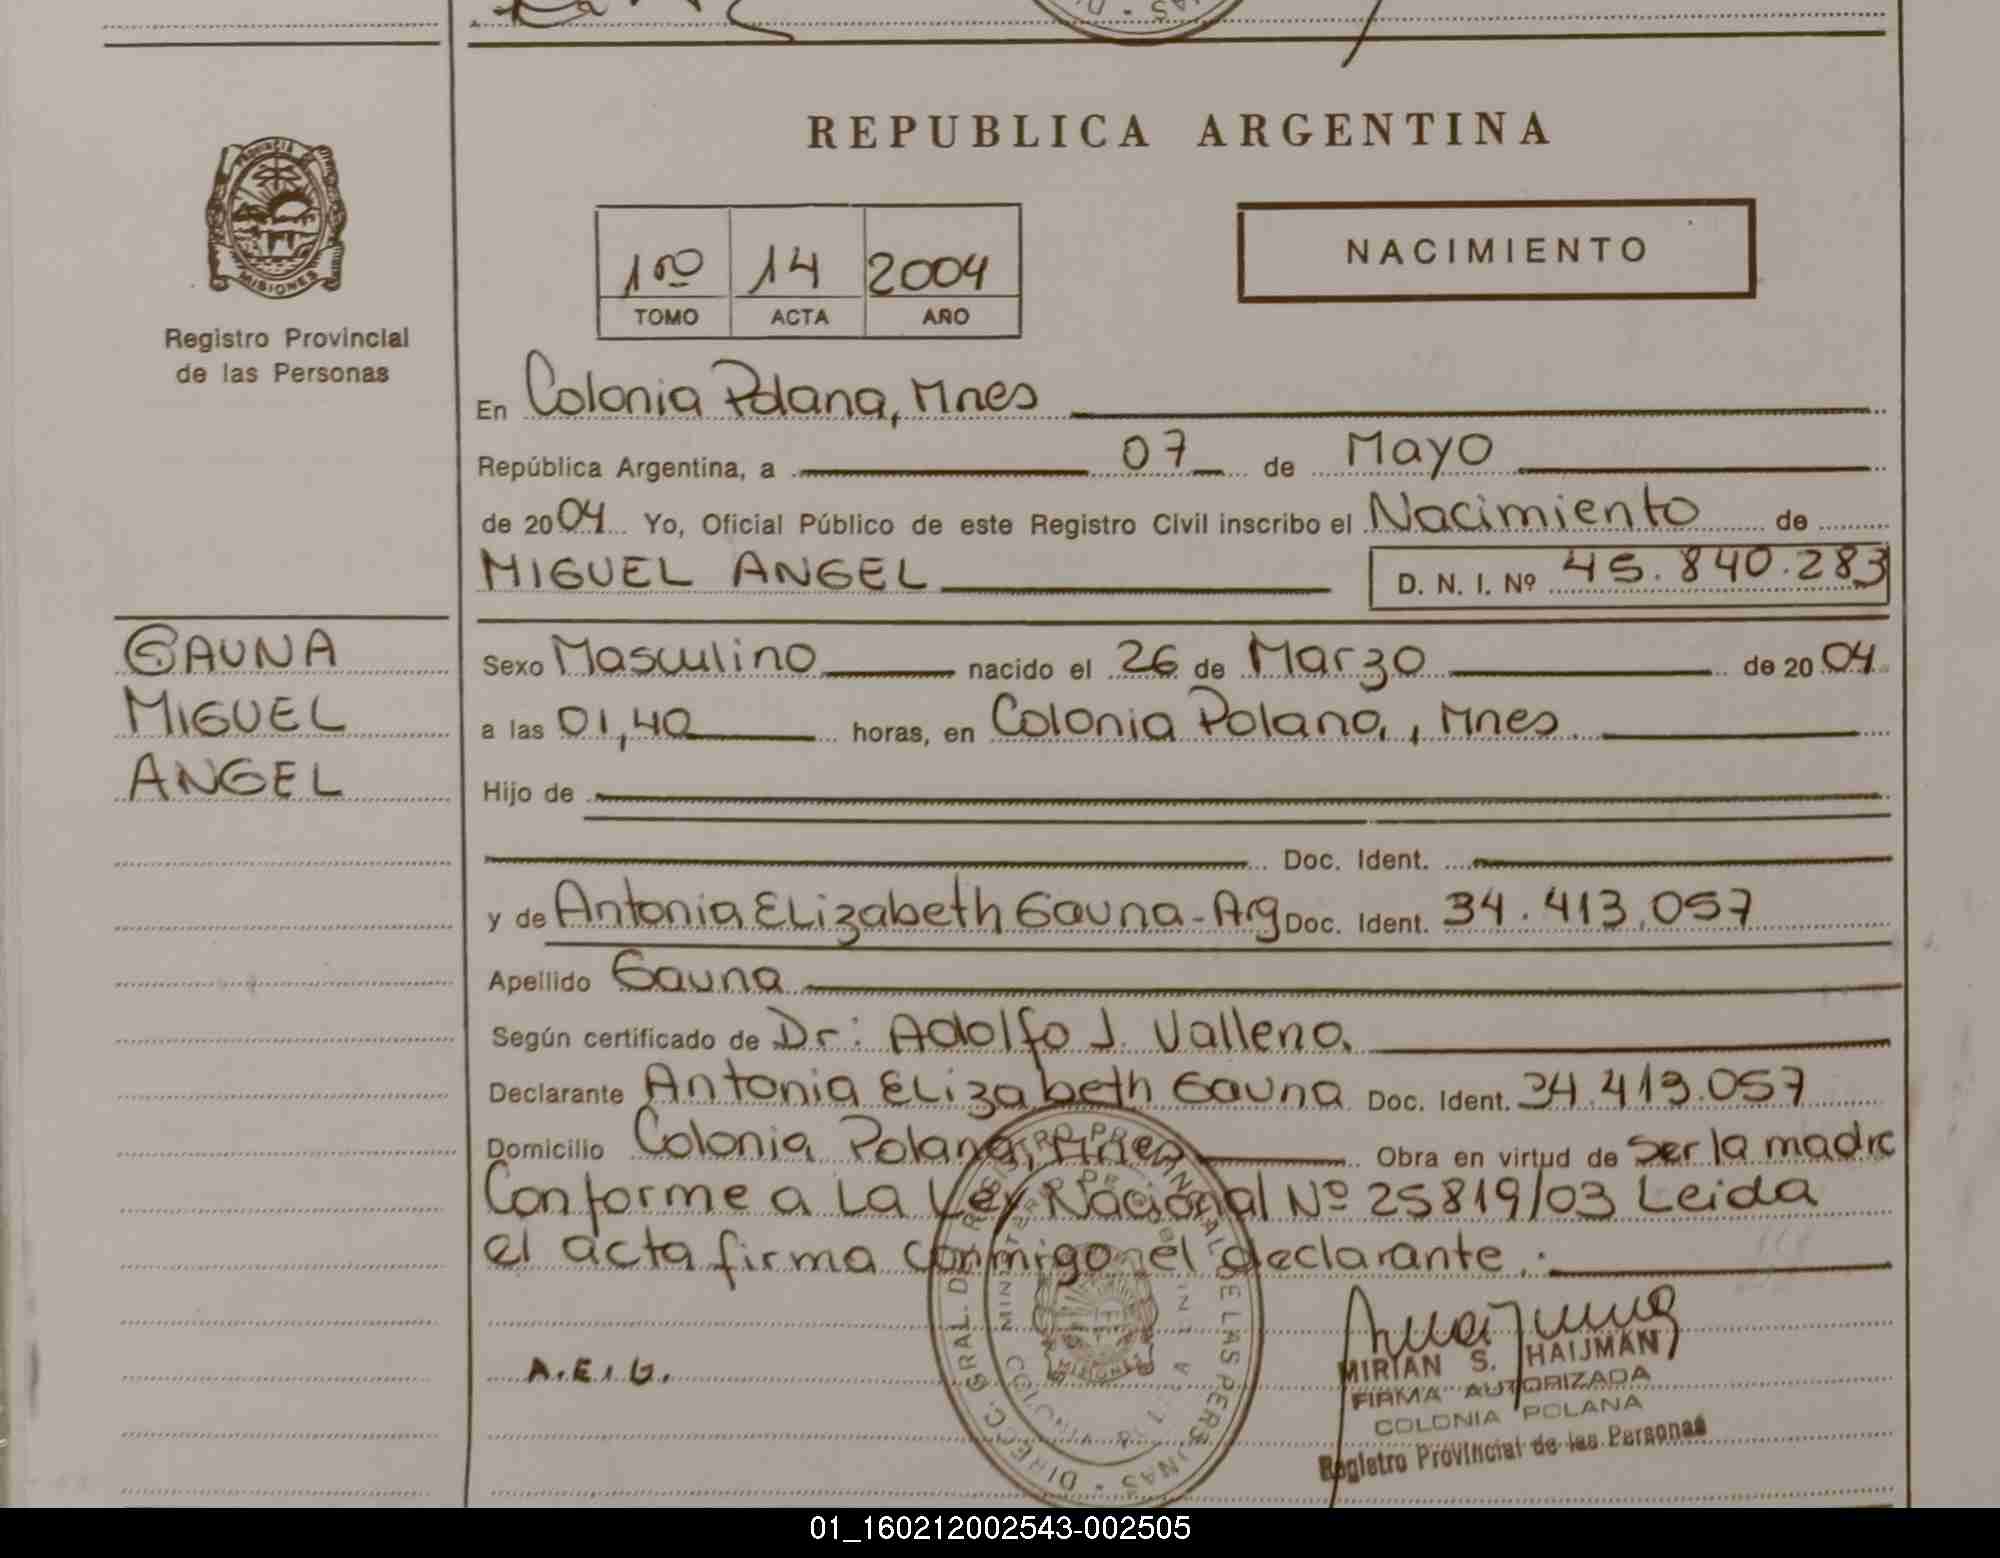 REPUBLICA ARGENTINA
PROVINCIA
MISIONES
Registro Provincial
de las Personas
1ro 14 2004
TOMO ACTA AÑO
NACIMIENTO
En Colonia Polana, Mnes
República Argentina, a 07 de Mayo
de 2004 Yo, Oficial Público de este Registro Civil inscribo el Nacimiento de
MIGUEL ANGEL D. N. I. Nº 45.840.283
GAUNA
MIGUEL
ANGEL
Sexo Masculino nacido el 26 de Marzo de 2004
a las 01,40 horas, en Colonia Polana, Mnes
Hijo de
Doc. Ident.
y de Antonia Elizabeth Gauna - Arg Doc. Ident. 34.413.057
Apellido Gauna
Según certificado de Dr: Adolfo J. Valleno.
Declarante Antonia Elizabeth Gauna Doc. Ident. 34.413.057
Domicilio Colonia Polana, Mnes Obra en virtud de ser la madre
Conforme a La Ley Nacional Nº 25819/03 Leida
el acta firma conmigo el declarante.
A.E.G.
MIRIAN S. HAIJMAN
FIRMA AUTORIZADA
COLONIA POLANA
Registro Provincial de las Personas
01_160212002543-002505